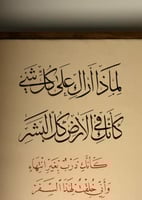 لماذا أراك على كل شيء
كأنك في الأرض كل البشر
كأنك درب بغير انتهاء
وأني خلقت لهذا السفر